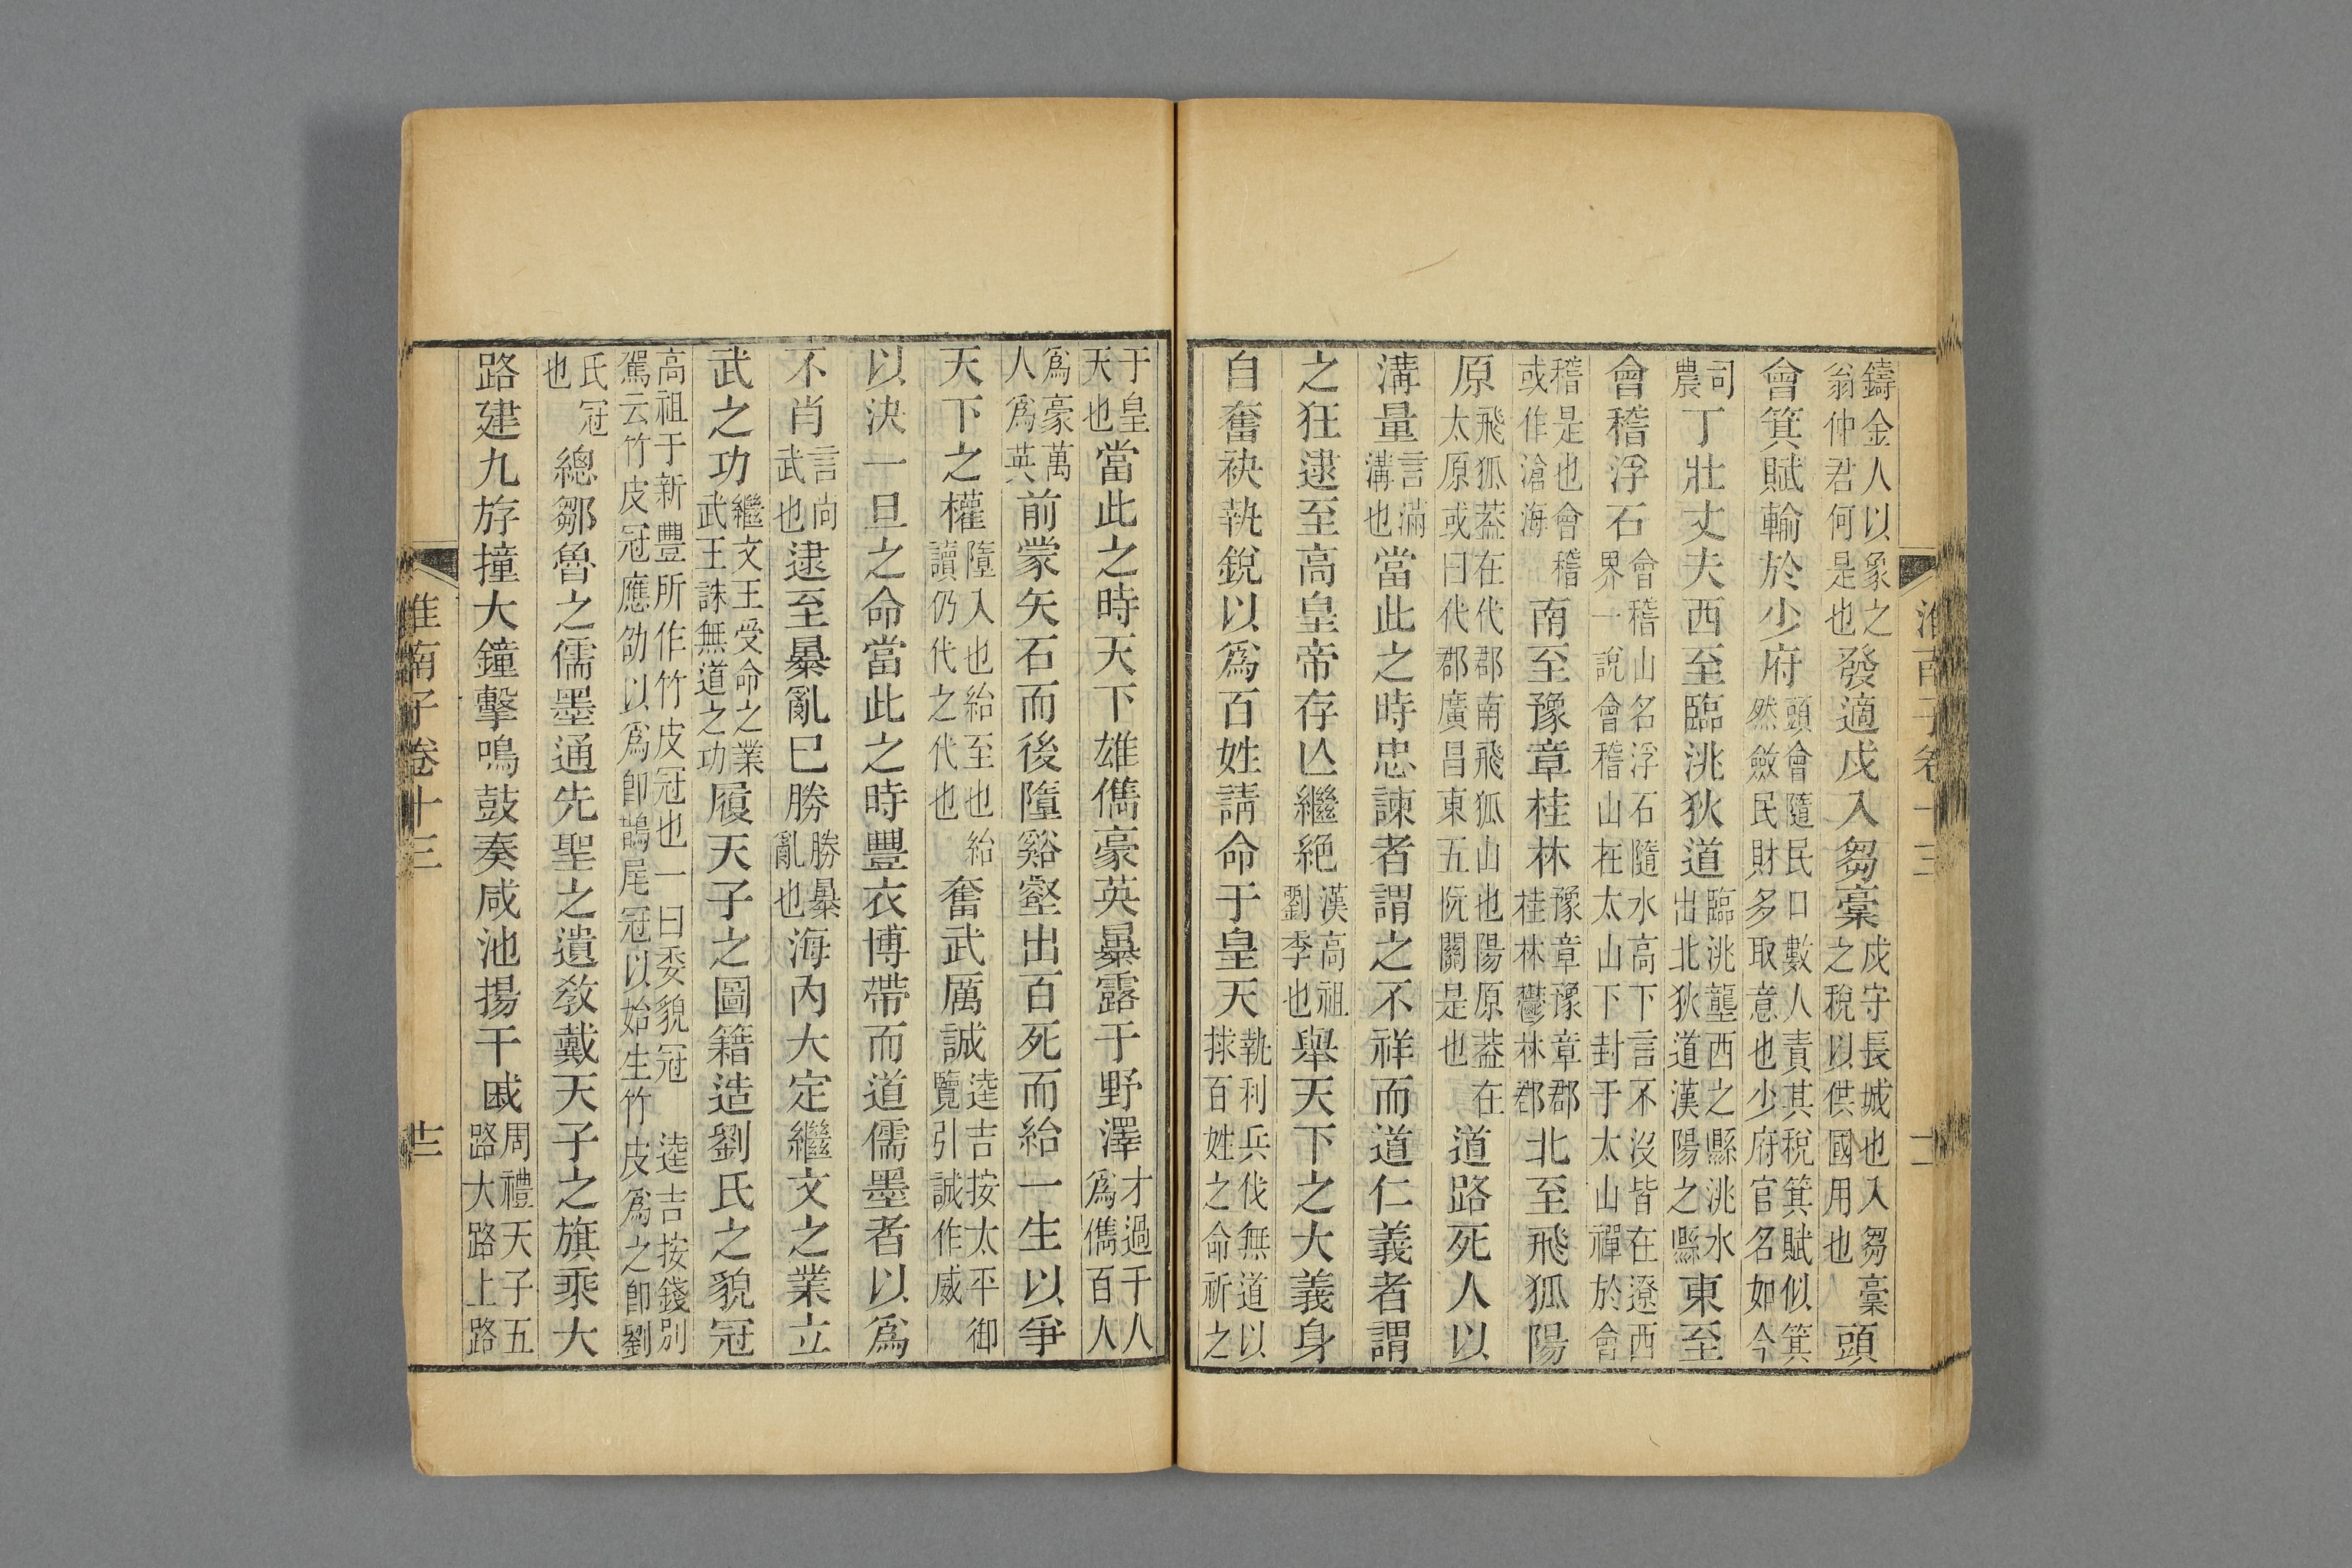 淮南子卷十三
鑄金人以象之翁仲君何是也發適戍入芻稾戍守長城也入芻稾之稅以供國用也頭
會箕賦輸於少府頭會隨民口數人責其稅箕賦似箕然斂民財多取意也少府官名如今
司農丁壯丈夫西至臨洮狄道臨洮隴西之縣洮水出北狄道漢陽之縣東至
會稽浮石會稽山名浮石隨水高下言不沒皆在遼西界一說會稽山在太山下封于太山禪於會
稽是也會稽或作滄海南至豫章桂林豫章豫章郡桂林鬱林郡北至飛狐陽
原飛狐葢在代郡南飛狐山也陽原葢在太原或曰代郡廣昌東五阮關是也道路死人以
溝量言滿溝也當此之時忠諫者謂之不祥而道仁義者謂
之狂逮至高皇帝存亾繼絕漢高祖劉季也舉天下之大義身
自奮袂執銳以爲百姓請命于皇天執利兵伐無道以捄百姓之命祈之
于皇天也當此之時天下雄儁豪英暴露于野澤才過千人爲儁百人
爲豪萬人爲英前蒙矢石而後墮谿壑出百死而紿一生以爭
天下之權墮入也紿至也紿讀仍代之代也奮武厲誠逵吉按太平御覽引誠作威
以決一旦之命當此之時豐衣博帶而道儒墨者以爲
不肖言尚武也逮至暴亂巳勝勝暴亂也海內大定繼文之業立
武之功繼文王受命之業武王誅無道之功履天子之圖籍造劉氏之貌冠
高祖于新豐所作竹皮冠也一曰委貌冠 逵吉按錢別駕云竹皮冠應劭以爲卽鵲尾冠以始生竹皮爲之卽劉
氏冠也總鄒魯之儒墨通先聖之遺敎戴天子之旗乘大
路建九斿撞大鐘擊鳴鼓奏咸池揚干戚周禮天子五路大路上路
淮南子卷十三 十二